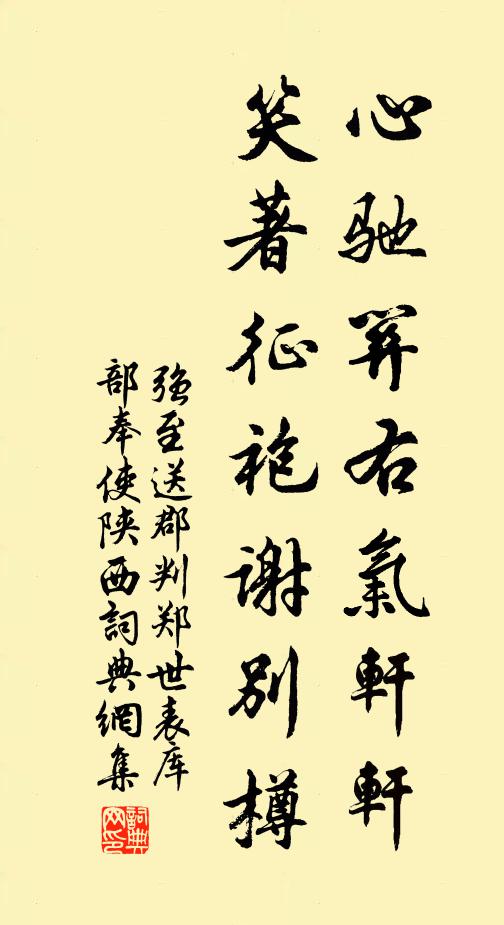 心驰关右氣軒軒
笑著征袍謝别樽
强至送郡判郑世表库
部奉使陕西詞典網集
詞典网印